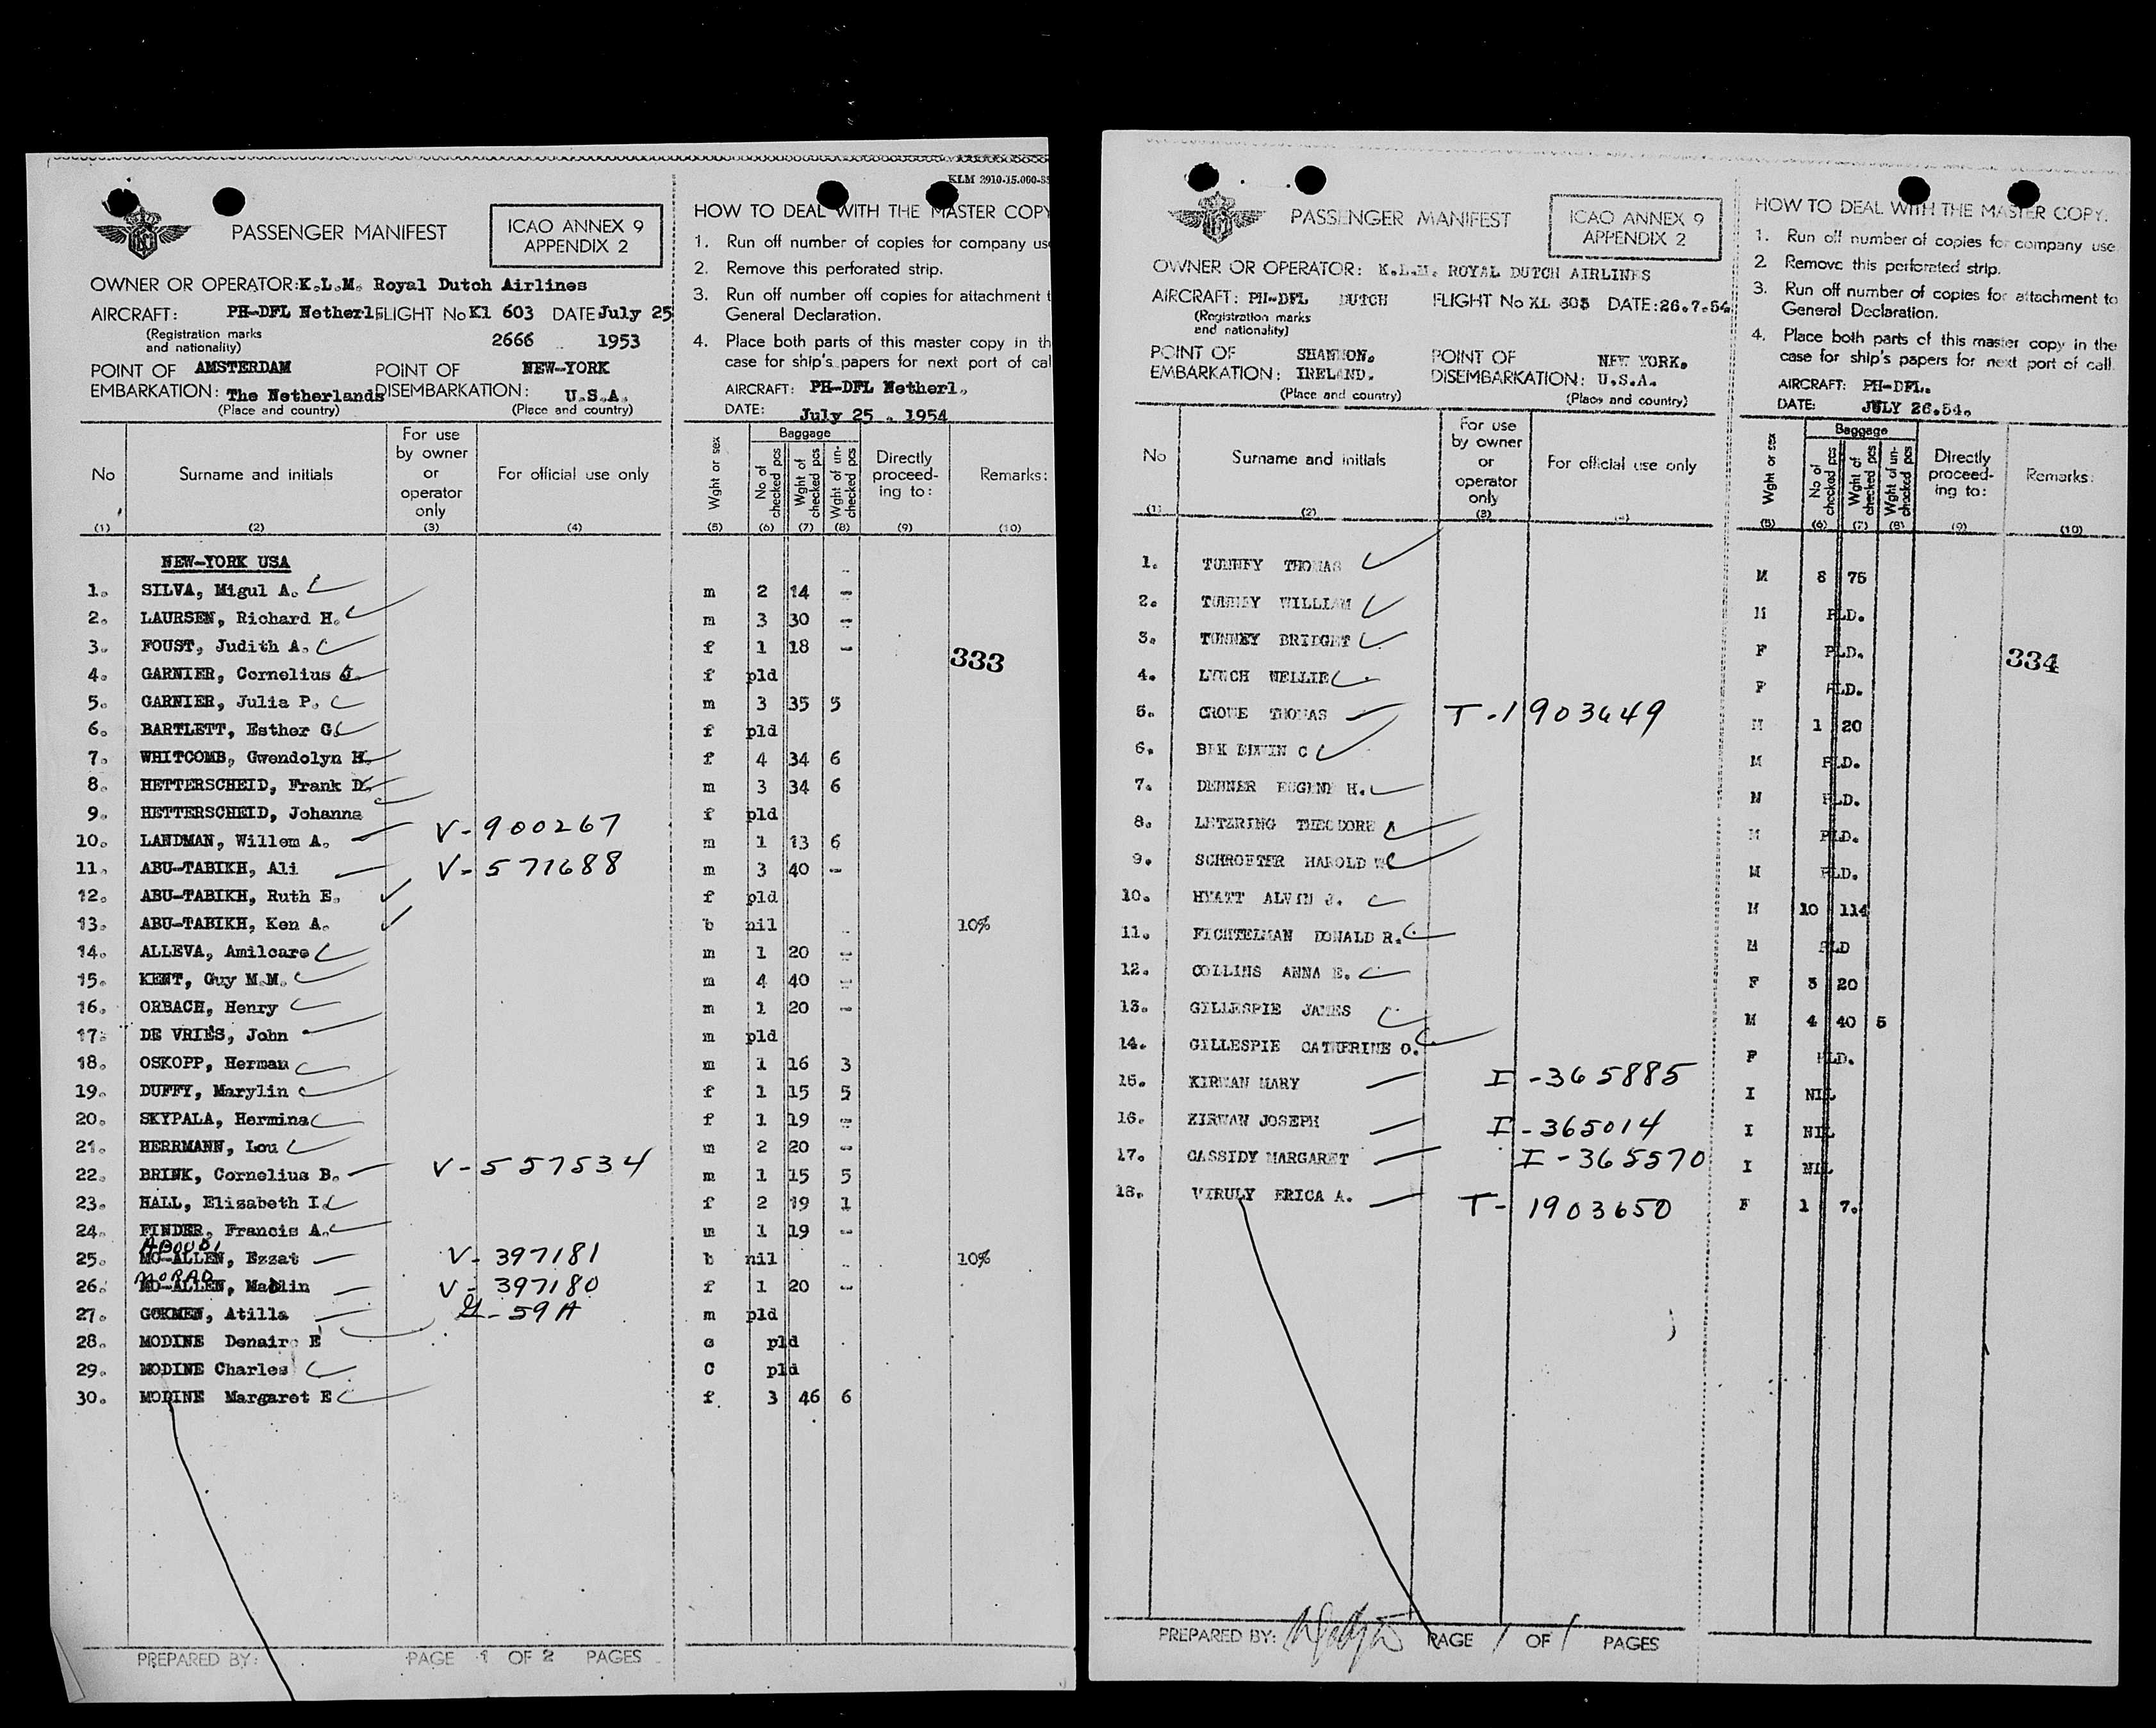 KLM 2910-15.000-
PASSENGER MANIFEST
ICAO ANNEX 9
APPENDIX 2
OWNER OR OPERATOR: K.L.M. Royal Dutch Airlines
AIRCRAFT: PH-DFL Netherl. FLIGHT No Kl 603 DATE July 25
(Registration marks
and nationality) 2666 1953
POINT OF AMSTERDAM POINT OF NEW-YORK
EMBARKATION: The Netherlands DISEMBARKATION: U.S.A.
(Place and country) (Place and country)
HOW TO DEAL WITH THE MASTER COPY
1. Run off number of copies for company use
2. Remove this perforated strip.
3. Run off number off copies for attachment t
General Declaration.
4. Place both parts of this master copy in th
case for ship's papers for next port of cal
AIRCRAFT: PH-DFL Netherl.
DATE: July 25. 1954
No Surname and initials For use by owner or operator only For official use only Wght or sex Baggage No of checked pcs Wght of checked pcs Wght of un-checked pcs Directly proceed-ing to: Remarks:
(1) (2) (3) (4) (5) (6) (7) (8) (9) (10)
NEW-YORK USA
1. SILVA, Migul A. m 2 14 -
2. LAURSEN, Richard H. m 3 30 -
3. FOUST, Judith A. f 1 18 -
333
4. GARNIER, Cornelius J. f pld
5. GARNIER, Julia P. m 3 35 5
6. BARTLETT, Esther G. f pld
7. WHITCOMB, Gwendolyn H. f 4 34 6
8. HETTERSCHEID, Frank D. m 3 34 6
9. HETTERSCHEID, Johanna f pld
10. LANDMAN, Willem A. V-900267 m 1 13 6
11. ABU-TABIKH, Ali V-571688 m 3 40 -
12. ABU-TABIKH, Ruth E. f pld
13. ABU-TABIKH, Ken A. b nil 10%
14. ALLEVA, Amilcare m 1 20 -
15. KENT, Guy M.M. m 4 40 -
16. ORBACH, Henry m 1 20 -
17. DE VRIES, John m pld
18. OSKOPP, Herman m 1 16 3
19. DUFFY, Marylin f 1 15 5
20. SKYPALA, Hermina f 1 19 -
21. HERRMANN, Lou m 2 20 -
22. BRINK, Cornelius B. V-557534 m 1 15 5
23. HALL, Elizabeth I. f 2 19 1
24. FINDER, Francis A. m 1 19 -
ABOUDI
25. MC-ALLEN, Ezzat V-397181 b nil 10%
MORAD
26. MC-ALLEN, Madlin V-397180 f 1 20 -
27. GOKMEN, Atilla -59A m pld
28. MODINE Denair E pld
29. MODINE Charles C pld
30. MODINE Margaret E f 3 46 6
PREPARED BY: PAGE 1 OF 2 PAGES
PASSENGER MANIFEST
ICAO ANNEX 9
APPENDIX 2
OWNER OR OPERATOR: K.L.M. ROYAL DUTCH AIRLINES
AIRCRAFT: PH-DFL DUTCH FLIGHT No KL 603 DATE: 26.7.54
(Registration marks
and nationality)
POINT OF SHANNON. POINT OF NEW YORK.
EMBARKATION: IRELAND. DISEMBARKATION: U.S.A.
(Place and country) (Place and country)
HOW TO DEAL WITH THE MASTER COPY.
1. Run off number of copies for company use
2. Remove this perforated strip.
3. Run off number of copies for attachment to
General Declaration.
4. Place both parts of this master copy in the
case for ship's papers for next port of call.
AIRCRAFT: PH-DFL.
DATE: JULY 26.54.
No Surname and initials For use by owner or operator only For official use only Wght or sex Baggage No of checked pcs Wght of checked pcs Wght of un-checked pcs Directly proceed-ing to: Remarks:
(1) (2) (3) (4) (5) (6) (7) (8) (9) (10)
1. TUNNEY THOMAS M 8 75
2. TUNNEY WILLIAM M PLD.
3. TUNNEY BRIDGET F PLD.
334
4. LYNCH NELLIE F PLD.
5. CROWE THOMAS T-1903649 M 1 20
6. BEK EDWIN C M PLD.
7. DENNER EUGENE H. M PLD.
8. LETZRING THEODORE A M PLD.
9. SCHROETER HAROLD W M PLD.
10. HYATT ALVIN J. M 10 114
11. FICHTELMAN DONALD R. M PLD
12. COLLINS ANNA E. F 3 20
13. GILLESPIE JAMES M 4 40 5
14. GILLESPIE CATHERINE O. F PLD.
15. KIRWAN MARY I-365885 I NIL
16. KIRWAN JOSEPH I-365014 I NIL
17. CASSIDY MARGARET I-365570 I NIL
18. VIRULY ERICA A. T-1903650 F 1 7.
PREPARED BY: PAGE 1 OF 1 PAGES